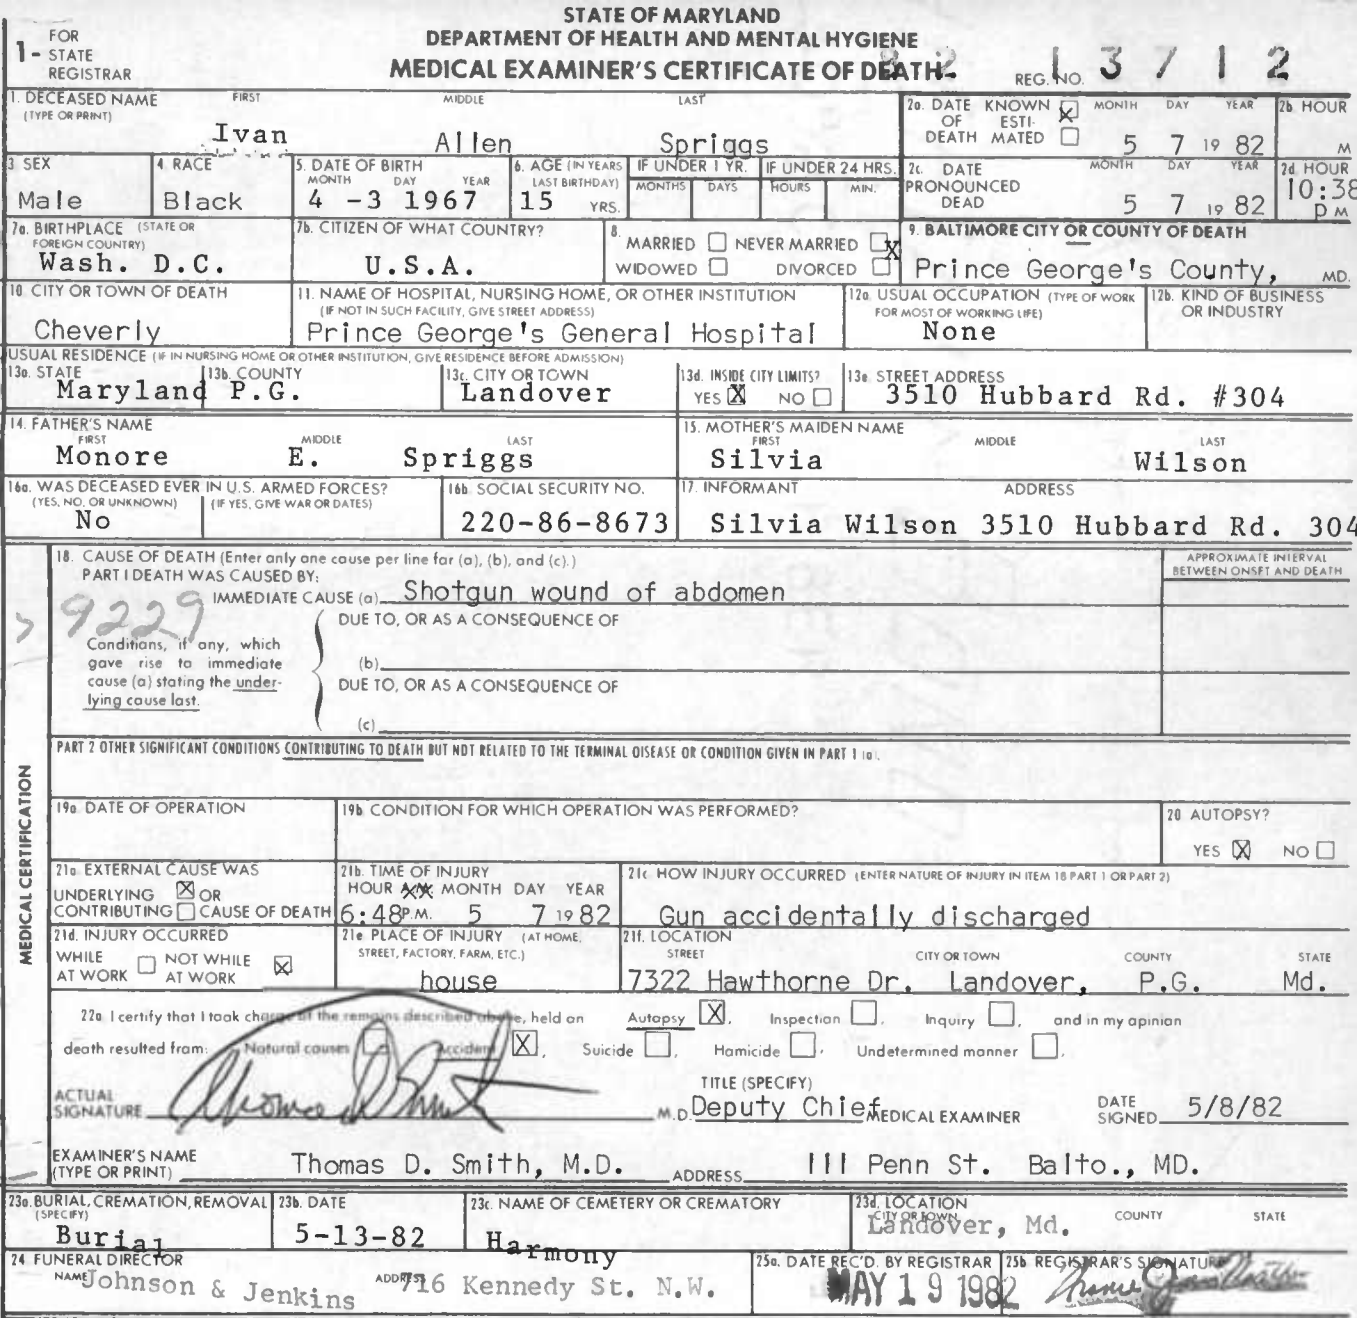 STATE OF MARYLAND
DEPARTMENT OF HEALTH AND MENTAL HYGIENE
MEDICAL EXAMINER'S CERTIFICATE OF DEATH
1- FOR STATE REGISTRAR
REG. NO. 82 13712
1. DECEASED NAME (TYPE OR PRINT) FIRST MIDDLE LAST
Ivan Allen Spriggs
2a. DATE OF DEATH KNOWN ☒ ESTIMATED ☐ MONTH DAY YEAR 2b HOUR
5 7 19 82 M
3 SEX 4. RACE 5. DATE OF BIRTH MONTH DAY YEAR 6. AGE (IN YEARS LAST BIRTHDAY) IF UNDER 1 YR. MONTHS DAYS IF UNDER 24 HRS. HOURS MIN.
Male Black 4 -3 1967 15 YRS.
2c. DATE PRONOUNCED DEAD MONTH DAY YEAR 2d HOUR
5 7 19 82 10:38 P M
7a. BIRTHPLACE (STATE OR FOREIGN COUNTRY)
Wash. D.C.
7b. CITIZEN OF WHAT COUNTRY?
U.S.A.
8. MARRIED ☐ NEVER MARRIED ☒
WIDOWED ☐ DIVORCED ☐
9. BALTIMORE CITY OR COUNTY OF DEATH
Prince George's County, MD.
10. CITY OR TOWN OF DEATH
Cheverly
11. NAME OF HOSPITAL, NURSING HOME, OR OTHER INSTITUTION
(IF NOT IN SUCH FACILITY, GIVE STREET ADDRESS)
Prince George's General Hospital
12a. USUAL OCCUPATION (TYPE OF WORK FOR MOST OF WORKING LIFE)
None
12b. KIND OF BUSINESS OR INDUSTRY
USUAL RESIDENCE (IF IN NURSING HOME OR OTHER INSTITUTION, GIVE RESIDENCE BEFORE ADMISSION)
13a. STATE 13b. COUNTY 13c. CITY OR TOWN 13d. INSIDE CITY LIMITS? 13e. STREET ADDRESS
Maryland P.G. Landover YES ☒ NO ☐ 3510 Hubbard Rd. #304
14. FATHER'S NAME FIRST MIDDLE LAST
Monore E. Spriggs
15. MOTHER'S MAIDEN NAME FIRST MIDDLE LAST
Silvia Wilson
16a. WAS DECEASED EVER IN U.S. ARMED FORCES?
(YES, NO, OR UNKNOWN) (IF YES, GIVE WAR OR DATES)
No
16b. SOCIAL SECURITY NO.
220-86-8673
17. INFORMANT ADDRESS
Silvia Wilson 3510 Hubbard Rd. 304
MEDICAL CERTIFICATION
18. CAUSE OF DEATH (Enter only one cause per line for (a), (b), and (c).)
APPROXIMATE INTERVAL BETWEEN ONSET AND DEATH
PART I DEATH WAS CAUSED BY:
IMMEDIATE CAUSE (a) Shotgun wound of abdomen
9229
DUE TO, OR AS A CONSEQUENCE OF
Conditions, if any, which
gave rise to immediate
cause (a) stating the under-
lying cause last.
(b)
DUE TO, OR AS A CONSEQUENCE OF
(c)
PART 2 OTHER SIGNIFICANT CONDITIONS CONTRIBUTING TO DEATH BUT NOT RELATED TO THE TERMINAL DISEASE OR CONDITION GIVEN IN PART 1 (a).
19a. DATE OF OPERATION
19b CONDITION FOR WHICH OPERATION WAS PERFORMED?
20 AUTOPSY?
YES ☒ NO ☐
21a. EXTERNAL CAUSE WAS
UNDERLYING ☒ OR
CONTRIBUTING ☐ CAUSE OF DEATH
21b. TIME OF INJURY
HOUR A.M. MONTH DAY YEAR
6:48 P.M. 5 7 19 82
21c HOW INJURY OCCURRED (ENTER NATURE OF INJURY IN ITEM 18 PART 1 OR PART 2)
Gun accidentally discharged
21d. INJURY OCCURRED
WHILE AT WORK ☐ NOT WHILE AT WORK ☒
21e PLACE OF INJURY (AT HOME, STREET, FACTORY, FARM, ETC.)
house
21f. LOCATION
STREET CITY OR TOWN COUNTY STATE
7322 Hawthorne Dr. Landover, P.G. Md.
22a I certify that I took charge of the remains described above, held an Autopsy ☒, Inspection ☐, Inquiry ☐, and in my opinion
death resulted from: Natural causes ☐ Accident ☒, Suicide ☐, Homicide ☐, Undetermined manner ☐.
ACTUAL SIGNATURE Thomas D. Smith M.D.
TITLE (SPECIFY)
Deputy Chief MEDICAL EXAMINER
DATE SIGNED 5/8/82
EXAMINER'S NAME (TYPE OR PRINT) Thomas D. Smith, M.D. ADDRESS 111 Penn St. Balto., MD.
23a. BURIAL, CREMATION, REMOVAL (SPECIFY)
Burial
23b. DATE
5-13-82
23c. NAME OF CEMETERY OR CREMATORY
Harmony
23d. LOCATION
CITY OR TOWN COUNTY STATE
Landover, Md.
24 FUNERAL DIRECTOR
NAME Johnson & Jenkins ADDRESS 716 Kennedy St. N.W.
25a. DATE REC'D. BY REGISTRAR
MAY 19 1982
25b REGISTRAR'S SIGNATURE